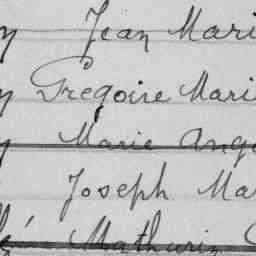 y Jean Mari
y Grégoire Mari
y Marie Ange
Joseph Ma
lé Mathurin